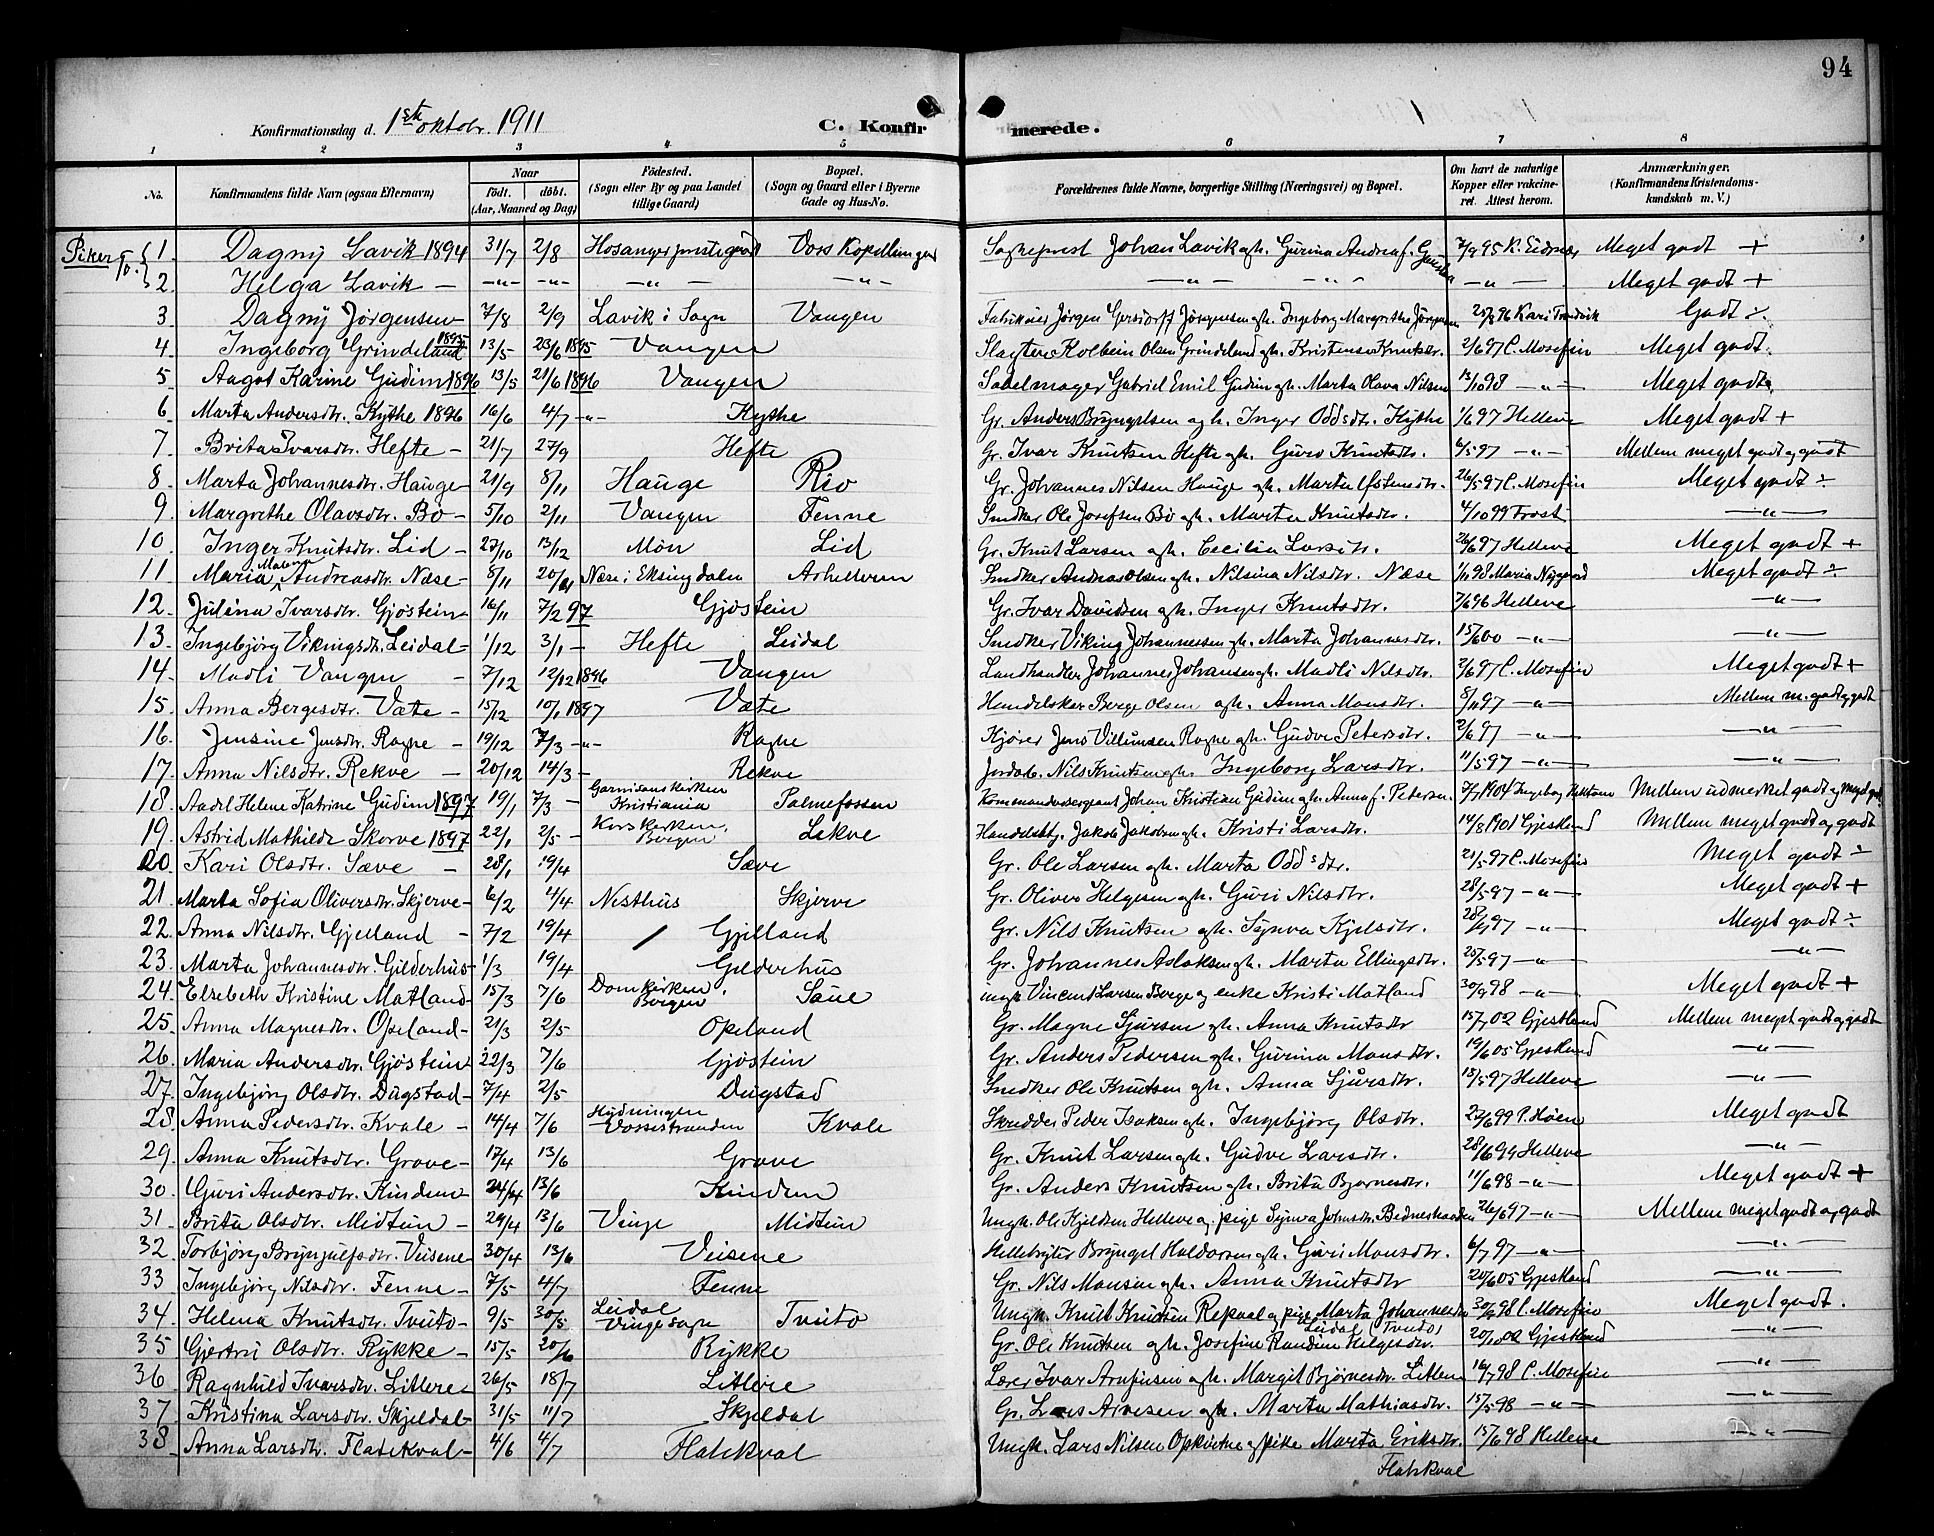 94
Konfirmationsdag d. 1ste oktobr. 1911 C. Konfirmerede.
1 2 3 4 5 6 7 8
No. Konfirmandens fulde Navn (ogsaa Efternavn) Naar født. døbt. (Aar, Maaned og Dag) Fødested. (Sogn eller By og paa Landet tillige Gaard) Bopæl. (Sogn og Gaard eller i Byerne Gade og Hus-No. Forældrenes fulde Navne, borgerlige Stilling (Næringsvei) og Bopæl. Om havt de naturlige Kopper eller vakcineret. Attest herom. Anmærkninger. (Konfirmandens Kristendomskundskab m. V.)
Piker
1. Dagny Lavik 1894 31/7 2/8 Hosanger prestegård Voss Sogneprest Johan Lavik gh. Gurina Andrea f. 7/9 95 K. Eidnæs Meget godt +
2. Helga Lavik — —"— —"— —"— —"— —"— —"— Meget godt +
3. Dagny Jörgensen 7/8 2/9 Lavik i Sogn Vangen Jörgen Gersdorff Jörgensen gh. Ingeborg Margrethe Jörgensen 96 Kari Godt ÷
4. Ingeborg Grindeland 1895 13/5 23/6 1895 Vangen Slagter Kolbein Olsen Grindeland gh. Kristense Knutsdtr. 2/6 97 C. Mosefin Meget godt.
5 Aagot Karine Gudim 1896 13/5 21/6 1896 Vangen Sadelmager Gabriel Emil Gudim gh. Marta Olava Nilsen 13/10 98 —"— Meget godt
6. Marta Andersdtr. Kythe 1896 16/6 4/7 -"- Kythe Gr. Anders Bryngelsen gh. Inger Oddsdtr. Kythe 1/6 97 Helleve Meget godt +
7. Brita Ivarsdtr. Hefte — 21/7 27/9 Hefte Gr. Ivar Knutsen Hefte gh. Guro Knutsdtr. 6/5 97 —"— Mellem meget godt og godt
8 Marta Johannesdtr. Hauge — 21/9 8/11 Hauge Rio Gr. Johannes Nilsen Hauge gh. Marta 26/5 97 C. Mosefin Meget godt ÷
9. Margrethe Olavsdtr. Bö — 5/10 2/11 Vangen Fenne Snedker Ole Josefsen Bö gh. Marta Knutsdtr. 4/10 99 Frost —"—
10 Inger Knutsdtr. Lid — 27/10 13/12 Mön Lid Gr. Knut Larsen gh. Cecilia Larsdtr. 26/6 97 Helleve Meget godt +
11. Maria Andreasdtr. Næse — 8/11 Næse i Eksingdalen Snedker Andreas Olsen gh. Nilsina Nilsdtr. Næse 1/11 98 Maria Meget godt ÷
12. Julina Ivarsdtr. Gjöstein 16/11 7/2 97 Gjöstein Gr. Ivar Davidsen gh. Inger Knutsdtr. 7/6 96 Helleve —"—
13. Ingebjörg Vikingsdtr. Leidal — 1/12 3/1 — Hefte Leidal Snedker Viking Johannessen gh. Marta Johannesdtr. —"— —"—
14. Madli Vangen — 7/12 12/12 1896 Vangen Landhandler Johannes Johansen gh. Madli Nilsdtr. 2/6 97 C. Mosefin Meget godt +
15. Anna Bergesdtr. Væte — 15/12 10/1 1897 Væte Berge Olsen gh. Anna Monsdtr. 8/11 97 —"— Mellem m. godt og godt
16. Jensine Jensdtr. Rogne — 19/12 7/3 -"- Rogne Kjörer Jens Villumsen Rogne gh. Gudve Petersdtr. 2/6 97 —"— —"—
17. Anna Nilsdtr. Rekve — 20/12 14/3 — Rekve Jordab. Nils Knutsen gh. Ingeborg Larsdtr. 11/5 97 —"— —"—
18. Aadel Helene Katrine Gudim 1897 19/1 7/3 — Garnisonskirken Kristiania Palmefossen Kommandersergeant Johan Kristian Gudim gh. Anna f. Petersen 7/7 1904 Mellem udmerket godt og meget godt
19. Astrid Mathilde Skorve 1897 22/1 2/5 — Korskirken Bergen Lekve Handelsbtj. Jakob Jakobsen gh. Kristi Larsdtr. 14/8 1901 Gjestland Mellem meget godt og godt
20. Kari Olsdtr. Sæve — 28/1 19/4 Sæve Gr. Ole Larsen gh. Marta Oddsdtr. 21/5 97 C. Mosefin Meget godt ÷
21. Marta Sofia Oliversdtr. Skjerve 6/2 4/4 Nesthus Skjerve Gr. Oliver Helgesen gh. Guri Nilsdtr. 28/5 97 —"— Meget godt +
22. Anna Nilsdtr. Gjelland — 7/2 19/4 Gjelland Gr. Nils Knutsen gh. Synva Kjelsdtr. 97 —"— Meget godt ÷
23. Marta Johannesdtr. Gilderhus 1/3 19/4 Gilderhus Gr. Johannes Aslaksen gh. Marta Ellingsdtr. 25/5 97 —"— —"—
24. Elsebeth Kristine Matland 15/3 7/6 Domkirken, Bergen Saue ungk. Vincent Larsen Berge og enke Kristi Matland 30/9 98 —"— Meget godt +
25. Anna Magnesdtr. Opeland — 21/3 2/5 Opeland Gr. Magne Sjursen gh. Anna Knutsdtr 15/7 02 Gjestland Mellem meget godt og godt
26. Maria Andersdtr. Gjöstein 22/3 7/6 Gjöstein Gr. Anders Pedersen gh. Gurina Monsdtr. 19/6 05 Gjestland —"—
27. Ingebjörg Olsdtr. Dugstad — 7/4 2/5 Dugstad Snedker Ole Knutsen gh. Anna Sjursdtr. 18/5 97 Helleve —"—
28. Anna Pedersdtr. Kvale — 14/4 7/6 Hydningen Vossestranden Kvale Skredder Peder Isaksen gh. Ingebjörg Olsdtr. 22/6 99 P. Höen Meget godt
29. Anna Knutsdtr. Grove — 17/4 13/6 Grove Gr. Knut Larsen gh. Gudve Larsdtr. 28/6 99 Helleve —"—
30. Guri Andersdtr. Kindem 24/4 13/6 Kindem Gr. Anders Knutsen gh. Brita Bjarnesdtr. 11/6 98 —"— Meget godt +
31. Brita Olsdtr. Midtun — 29/4 13/6 Vinje Midtun Ungk. Ole Kjeldsen Helleve og pige Synva Johnsdtr. 26/6 97 —"— Mellem meget godt og godt
32. Torbjörg Brynjulfsdtr. Veisene 30/4 13/6 Veisene Hellebryter Bryngel Haldorsen gh. Guri Monsdtr. 6/7 97 —"— —"—
33 Ingebjörg Nilsdtr. Fenne — 7/5 4/7 Fenne Gr. Nils Monsen gh. Anna Knutsdtr 20/6 05 Gjestland —"—
34. Helena Knutsdtr. Tvuto — 9/5 30/5 Leidal Vinge sogn Tvuto Ungk. Knut Knutsen Rekval og pige Marta Johannesdtr 98 C. Mosefin Meget godt.
Leidal (Tvuto)
35 Gjertru Olsdtr. Rykke — 15/5 20/6 Rykke Gr. Ole Knutsen gh. Josefine Randine Helgesdtr. 02 Gjestland —"—
36. Ragnhild Ivarsdtr. Litlere — 26/5 18/7 Litlere Lærer Ivar Arnfinsen gh. Margit Björnesdtr. 16/7 98 C. Mosefin —"—
37. Kristina Larsdtr. Skjeldal — 31/5 11/7 Skjeldal Gr. Lars Arvesen gh. Marta Mathiasdtr. 15/5 98 —"— —"—
38 Anna Larsdtr. Flatekval — 4/6 4/7 Flatekval Ungk. Lars Nilsen og pike Marta Eriksdtr. 15/6 98 Helleve —"—
Flatekval